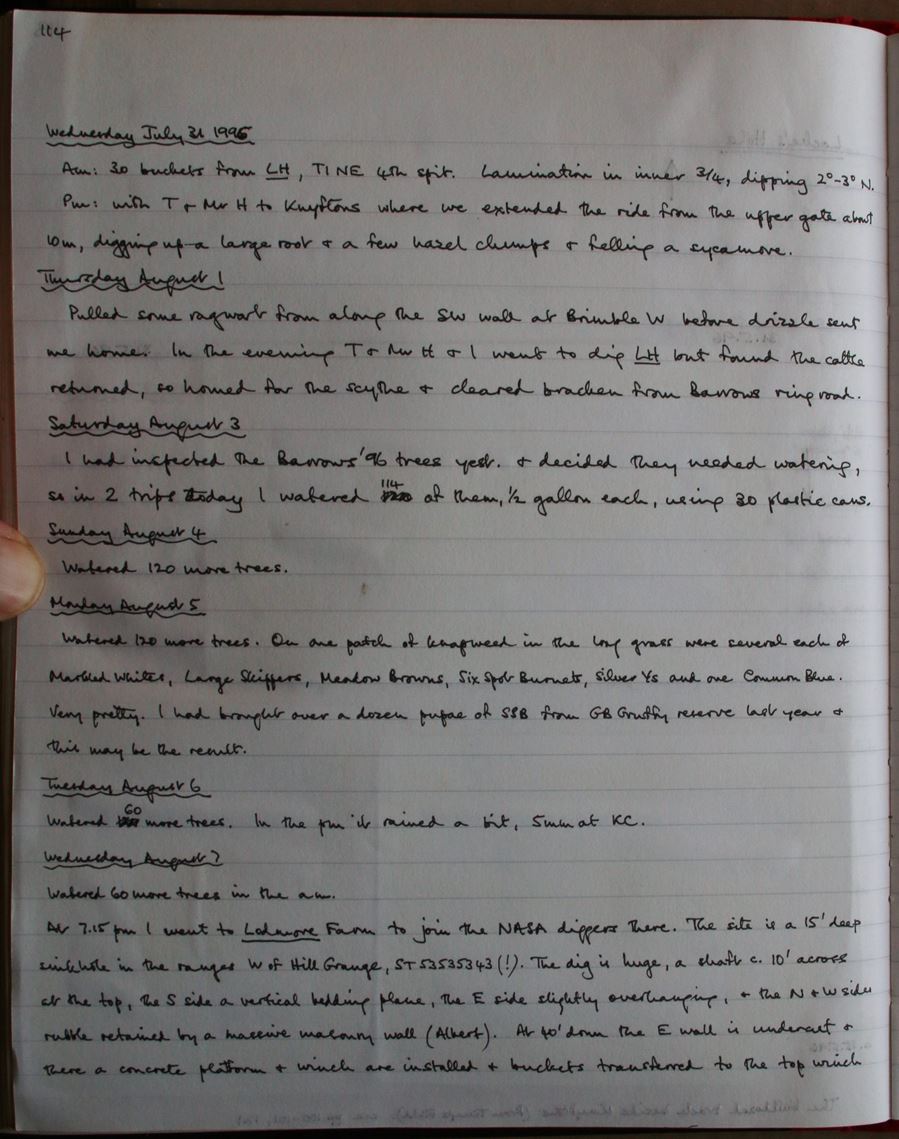 114
Wednesday July 31 1996
Am: 30 buckets from LH, TINE 4th spit. Lamination in inner 3/4, dipping 2°-3° N.
Pm: with T & Mr H to Knyftons where we extended the ride from the upper gate about
10m, digging up a large root & a few hazel clumps & felling a sycamore.
Thursday August 1
Pulled some ragwort from along the SW wall at Brimble W before drizzle sent
me home. In the evening T & Mr H & I went to dig LH but found the cattle
returned, so homed for the scythe & cleared bracken from Barrows ring road.
Saturday August 3
I had inspected the Barrows '96 trees yest. & decided they needed watering,
so in 2 trips today I watered 114 of them, 1/2 gallon each, using 30 plastic cans.
Sunday August 4
Watered 120 more trees.
Monday August 5
Watered 120 more trees. On one patch of knapweed in the long grass were several each of
Marbled Whites, Large Skippers, Meadow Browns, Six Spot Burnets, Silver Ys and one Common Blue.
Very pretty. I had brought over a dozen pupae of SSB from GB Gruffy reserve last year &
this may be the result.
Tuesday August 6
Watered 60 more trees. In the pm it rained a bit, 5mm at KC.
Wednesday August 7
Watered 60 more trees in the am.
At 7.15 pm I went to Lodmore Farm to join the NASA diggers there. The site is a 15' deep
sinkhole in the ranges W of Hill Grange, ST 53535343 (!). The dig is huge, a shaft c. 10' across
at the top, the S side a vertical bedding plane, the E side slightly overhanging, & the N & W sides
rubble retained by a massive masonry wall (Albert). At 40' down the E wall is undercut &
there a concrete platform & winch are installed & buckets transferred to the top winch